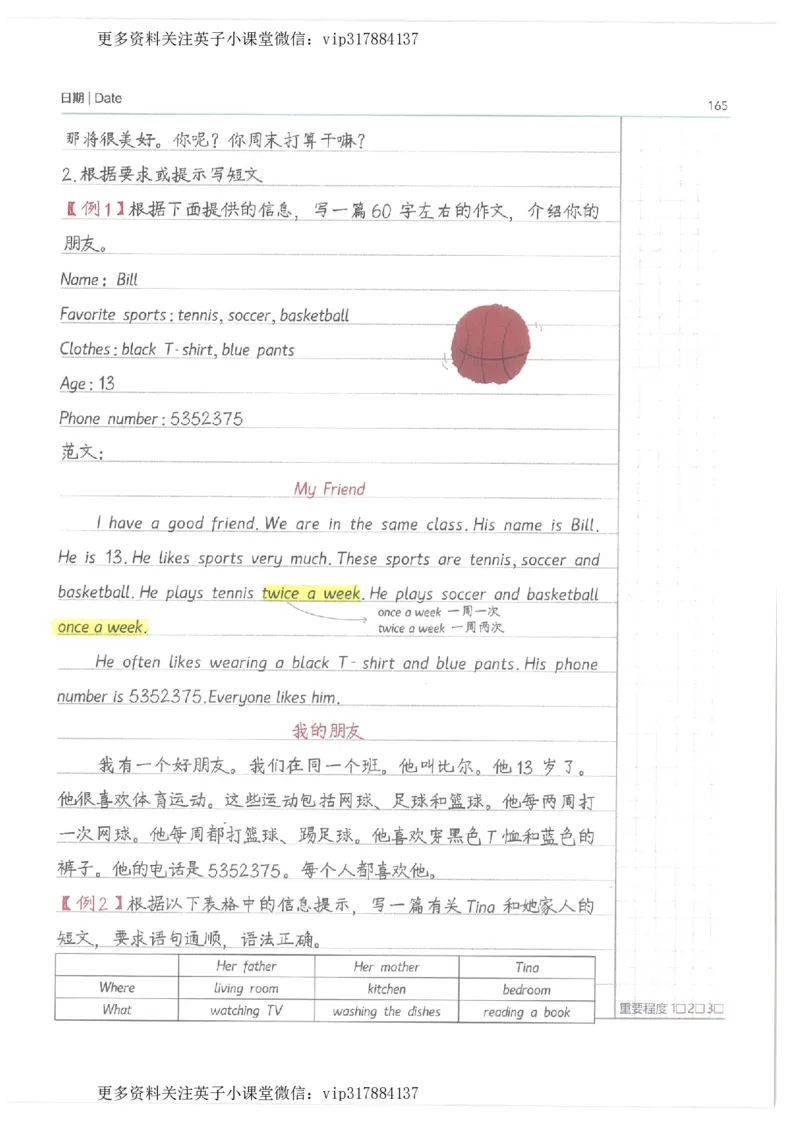 更多资料关注英子小课堂微信：vip317884137
日期 | Date
165
那将很美好。你呢？你周末打算干嘛？
2.根据要求或提示写短文
【例1】根据下面提供的信息，写一篇60字左右的作文，介绍你的
朋友。
Name: Bill
Favorite sports: tennis, soccer, basketball
Clothes: black T-shirt, blue pants
Age: 13
Phone number: 5352375
范文：
My Friend
I have a good friend. We are in the same class. His name is Bill.
He is 13. He likes sports very much. These sports are tennis, soccer and
basketball. He plays tennis twice a week. He plays soccer and basketball
once a week 一周一次
once a week.
twice a week 一周两次
He often likes wearing a black T-shirt and blue pants. His phone
number is 5352375. Everyone likes him.
我的朋友
我有一个好朋友。我们在同一个班。他叫比尔。他13岁了。
他很喜欢体育运动。这些运动包括网球、足球和篮球。他每两周打
一次网球。他每周都打篮球、踢足球。他喜欢穿黑色T恤和蓝色的
裤子。他的电话是5352375。每个人都喜欢他。
【例2】根据以下表格中的信息提示，写一篇有关Tina和她家人的
短文，要求语句通顺，语法正确。
Her father Her mother Tina
Where living room kitchen bedroom
What watching TV washing the dishes reading a book
重要程度 1□2□3□
更多资料关注英子小课堂微信：vip317884137